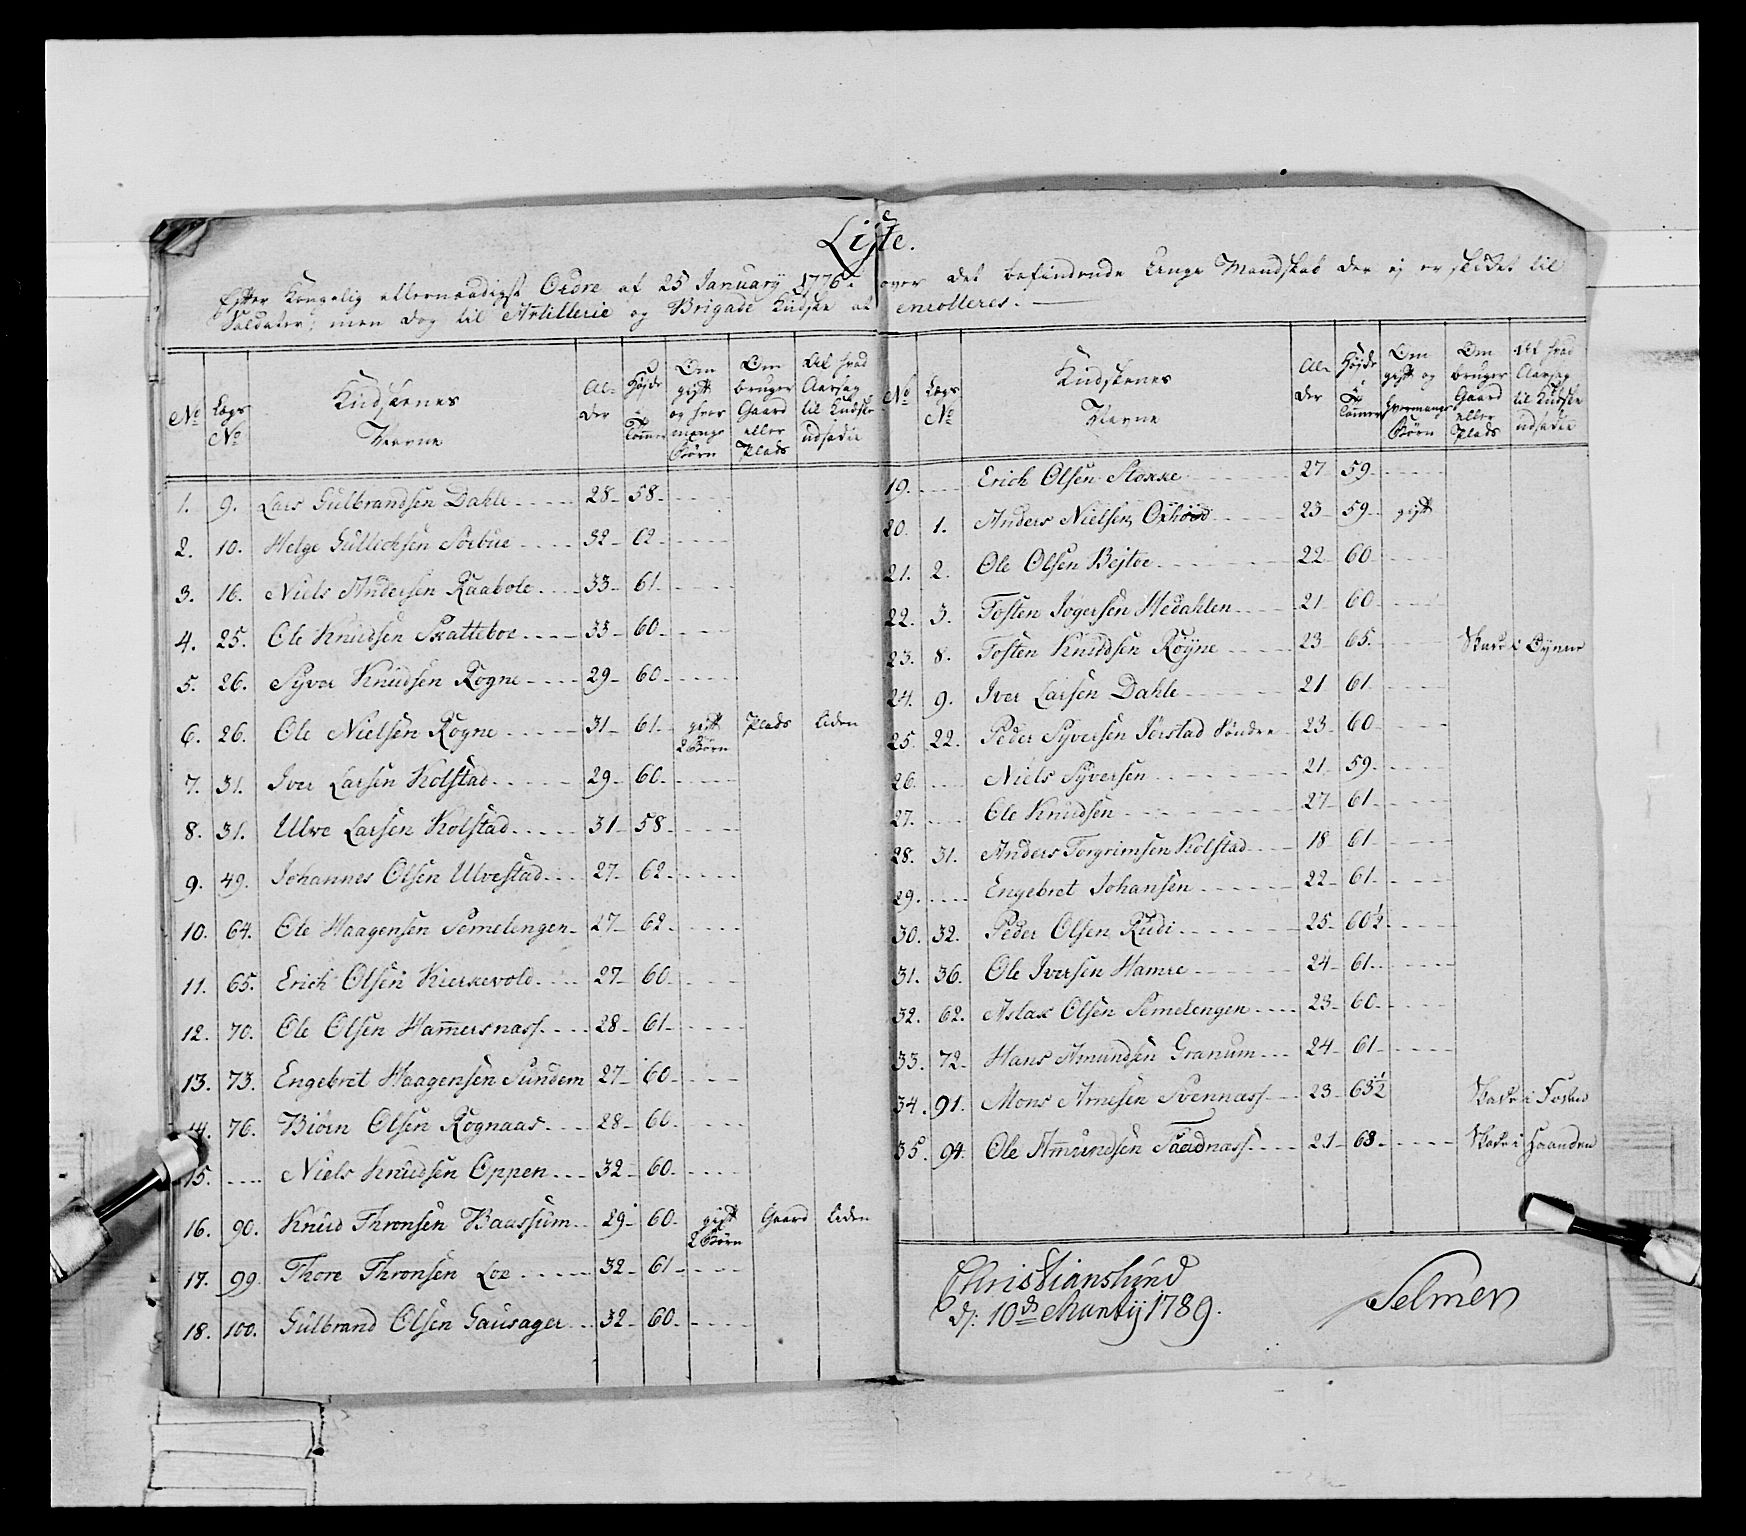 Liste.
Efter Kongelig allernaadigst Ordre af 25 January 1776. over det befindende unge Mandskab der ej er skikket til
Soldater; men dog til Artillerie og Brigade Kudske at enrolleres.
No Lægs No Kudskenes Navne Alder Højde Tommer Om gift og hvor mange Børn Om bruger Gaard eller Plads Af hvad Aarsag til Kudsk udsadt
1. 9. Lars Gulbrandsen Dahle 28 58
2. 10. Helge Gullichsen Sørbue 32 62
3. 16. Niels Andersen Raabole 33 61
4. 25. Ole Knudsen Skatteboe 33 60
5. 26. Syver Knudsen Rogne 29 60
6. 26. Ole Nielsen Rogne 31 61 gift 2 Børn Plads liden
7. 31. Iver Larsen Kolstad 29 60
8. 31. Ulve Larsen Kolstad 31 58
9. 49. Johannes Olsen Ulvestad 27 62
10. 64. Ole Haagensen Semelengen 27 62
11. 65. Erich Olsen Kierkevold 27 60
12. 70. Ole Olsen Hammersnass 28 61
13. 73. Engebret Haagensen Sundem 27 60
14. 76. Biørn Olsen Rognaas 28 60
15. Niels Knudsen Oppen 32 60
16. 90. Knud Thronsen Baassum 29 60 gift 2 Børn Gaard liden
17. 99. Thore Thronsen Loe 32 61
18. 100. Gulbrand Olsen Gausager 32 60
No Lægs No Kudskenes Navne Alder Højde Tommer Om gift og hvormange Børn Om bruger Gaard eller Plads Af hvad Aarsag til Kudsk udsadt
19. Erich Olsen Stokke 27 59
20. 1. Anders Nielsen Oxhovd 23 59 gift
21. 2. Ole Olsen Bejtoe 22 60
22. 3. Tosten Jøgersen Hedahlen 21 60
23. 8. Tosten Knudsen Røyne 23 65 Skade i Øynene
24. 9. Iver Larsen Dahle 21 61
25. 22. Peder Syversen Jerstad Søndre 23 60
26. Niels Syversen 21 59
27. Ole Knudsen 27 61
28. 31. Anders Torgrimsen Kolstad 18 61
29. Engebret Johansen 22 61
30. 32. Peder Olsen Rudi 25 60½
31. 36. Ole Iversen Hamre 24 61
32. 62. Aslak Olsen Semelengen 23 60
33. 72. Hans Amundsen Granum 24 61
34. 91. Mons Arnesen Svennass 23 63½ Skade i Foden
35. 94. Ole Amundsen Taadnass 21 63 Skade i Haanden
Christianslund
d: 10de Marty 1789.
Selmer